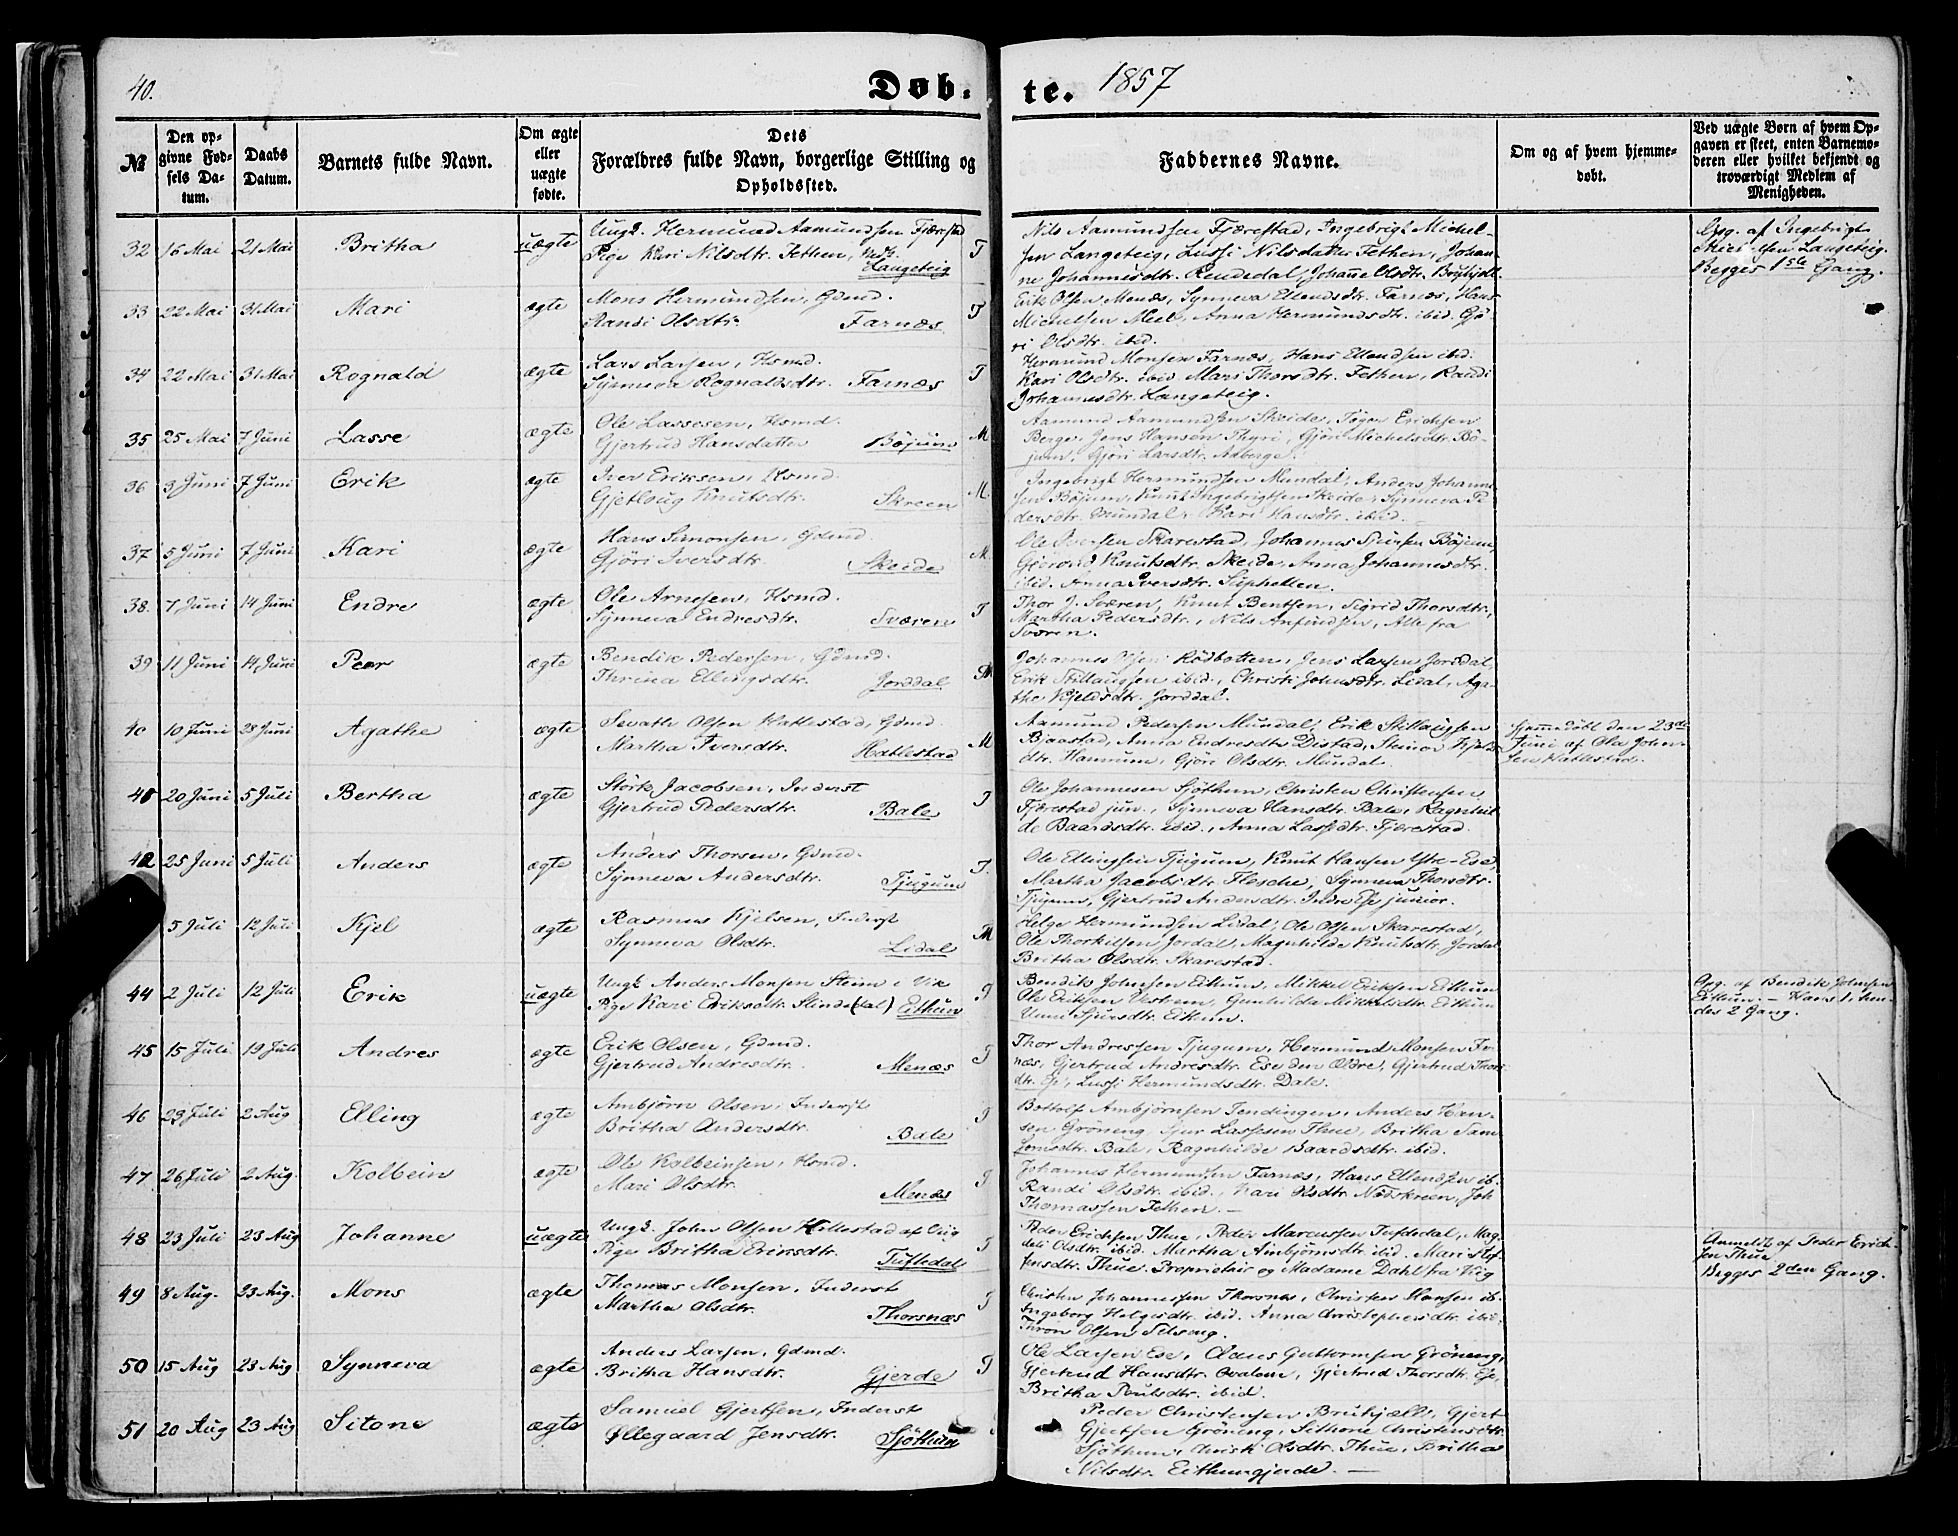 40.
Døb-
te.
1857
№
Den op-
givne Fød-
sels Da-
tum.
Daabs
Datum.
Barnets fulde Navn.
Om ægte
eller
uægte
fødte.
Dets
Forældres fulde Navn, borgerlige Stilling og
Opholdssted.
Faddernes Navne.
Om og af hvem hjemme-
døbt.
Ved uægte Børn af hvem Op-
gaven er skeet, enten Barnemo-
deren eller hvilket bekjendt og
troværdigt Medlem af
Menigheden.
32 16 Mai 21 Mai Britha uægte
Ungk. Hermund Aamundsen Fjærestad
Pige Kari Nilsdtr. Fethen,
Langeteig
Nils Aamundsen Fjærestad, Ingebrigt Michel-
sen Langeteig, Lussi Nilsdatter Fethen, Johan-
ne Johannesdtr. Rendedal, Johane Olsdtr.
Opg. af Ingebrigt
Michelsen Langeteig.
Begges 1ste Gang.
33 22 Mai 31 Mai Mari ægte
Mons Hermundsen, Gdmd.
Randi Olsdtr. Farnæs T
Erik Olsen Menæs, Synneva Ellendsdtr. Farnæs, Hans
Michelsen Meel, Anna Hermundsdtr. ibid. Gjø-
ri Olsdtr. ibid.
34 22 Mai 31 Mai Rognald ægte
Lars Larsen, Hsmd.
Synneva Rognaldsdtr. Farnæs T
Hermund Monsen Farnæs, Hans Ellendsen ibid.
Kari Olsdtr. ibid. Mari Thorsdtr. Fethen, Randi
Johannesdtr. Langeteig.
35 25 Mai 7 Juni Lasse ægte
Ole Lassesen, Hsmd.
Gjertrud Hansdatter Bøjum M
Aamund Aamundsen Skeide, Tøger Erichsen
Berge, Jens Hansen Thyri, Gjøri Michelsdtr. Bø-
jum. Gjøri Larsdtr.
36 3 Juni 7 Juni Erik ægte
Iver Eriksen, Hsmd.
Gjetloug Knutsdtr. Skreen M.
Ingebrigt Hermundsen Mundal, Anders Johanne-
sen Bøjum, Knut Ingebrigtsen Skeide, Synneva Pe-
dersdtr. Mundal, Kari Hansdtr. ibid.
37 5 Juni 7 Juni Kari ægte
Hans Simonsen, Gdmd.
Gjøri Iversdtr. Skeide M.
Ole Iversen Skarestad, Johannes Bøjum,
Knutsdtr. Skeide, Anna Johannesdtr.
ibid. Anna Iversdtr.
38. 7 Juni 14 Juni Endre ægte
Ole Arnesen, Hsmd.
Synneva Endresdtr. Sværen T
Thor J. Sværen, Knut Bentsen, Sigrid Thorsdtr.,
Martha Pedersdtr., Nils Anfindsen, Alle fra
Sværen.
39 11 Juni 14 Juni Peer ægte
Bendik Pedersen, Gdmd.
Thrina Ellingsdtr. Jorddal M
Johannes Rødbotten, Jens Larsen Jordal,
Erik Stillaugsen ibid., Christi Johnsdtr. Lidal, Aga-
the Kjeldsdtr. Jorddal.
40 10 Juni 28 Juni Agathe ægte
Sevath Olsen Hatlestad, Gdmd.
Martha Iversdtr. Hatlestad M
Aamund Pedersen Mundal, Erik Stillaugsen
Bjaastad, Anna Endresdtr. Distad,
dtr. Hamrum, Gjøri Olsdtr. Mundal.
Hjemmedøbt den 23de
Juni af Ole John-
sen Hatlestad.
41 20 Juni 5 Juli Bertha ægte
Størk Jacobsen, Inderst
Gjertrud Pedersdtr. Bale T
Ole Johannesen Sjøthun, Christen Christensen
Fjærestad jun., Synneva Hansdtr. Bale, Ragnhil-
de Baardsdtr. ibid., Anna Lassedtr. Fjærestad.
42 25 Juni 5 Juli Anders ægte
Anders Thorsen, Gdmd.
Synneva Andersdtr. Tjugum T.
Ole Ellingsen Tjugum, Knut Hansen Ytre-Ese,
Martha Jacobsdtr. Flesche, Synneva Thorsdtr.
Tjugum, Gjertrud Andersdtr. Indre Ese junior.
5 Juli 12 Juli Kjel ægte
Rasmus Kjelsen, Inderst
Synneva Olsdtr. Lidal M
Helge Hermundsen Lidal, Ole Olsen Skarestad,
Ole Thorkilsen Jordal, Magnhilde Knutsdtr. Jordal
Britha Olsdtr. Skarestad.
44 2 Juli 12 Juli Erik uægte
Ungk. Anders Monsen Steim i Vik
Pige Kari Eriksdtr. Slinde(tal) Eithun
Bendik Johnsen Eithun, Mikkel Eriksen Eithun
Ole Eriksen Vestrem, Gunhilde Mikkelsdtr. Eithun
Unni Sjursdtr. Eithun.
Opg. af Bendik Johnsen
Eithun. – Hans 1. hen-
des 2 Gang.
45 15 Juli 19 Juli Andres ægte
Erik Olsen, Gdmd.
Gjertrud Andresdtr. Menæs T
Thor Andressen Tjugum, Hermund Monsen Far-
næs, Gjertrud Andresdtr. Ese den Ældre, Gjertrud Thors-
dtr. Ese, Lussi Hermundsdtr. Dale.
46 23 Juli 2 Aug Elling ægte
Ambjørn Olsen, Inderst
Britha Andersdtr. Bale T
Bottolf Ambjørnsen Tendingen, Anders Han-
sen Grøneng, Sjur Lassesen Thue, Britha Sam-
sonsdtr. Bale, Ragnhilde Baardsdtr. ibid.
47 26 Juli 2 Aug. Kolbein ægte
Ole Kolbeinsen, Hsmd.
Mari Olsdtr. Menæs T
Johannes Hermundsen Farnæs, Hans Ellendsen ib.
Randi Olsdtr. ibid., Kari Olsdtr. Nedskreen, Joh
Thomassen Fethen. –
48 23 Juli 23 Aug Johanne uægte
Ungk. John Olsen Hellestad af Vig
Pige Britha Eriksdtr. Tuftedal T
Peder Erichsen Thue, Peder Marcussen Tuftedal, Mag-
deli Olsdtr. ibid. Martha Ambjørnsdtr. ibid. Mari Stef-
fensdtr. Thue. Proprietair og Madame Dahl fra Vig
Anmeldt af Peder Erich-
sen Thue
Begges 2den Gang.
49 8 Aug. 23 Aug. Mons ægte
Thomas Monsen, Inderst
Martha Olsdtr. Thorsnæs T
Christen Johannessen Thorsnæs, Christen Hansen ib.
Ingeborg Helgesdtr. ibid. Anna Christophersdtr. ibid.
Thron Olsen
50 15 Aug 23 Aug Synneva ægte
Anders Larsen, Gdmd.
Britha Hansdtr. Gjerde T
Ole Larsen Ese, Claus Guttormsen Grøneng,
Gjertrud Hansdtr. Gjertrud Thorsdtr. Ese,
Britha Poulsdtr. ibid.
51 20 Aug 23 Aug Sitone ægte
Samuel Gjertsen, Inderst
Øllegaard Jensdtr. Sjøthun
Peder Christensen Gjert
Gjertsen Grøneng, Sithone Christensdtr.
Sjøthun, Christi Olsdtr. Thue, Britha
Nilsdtr. Eithungjerde. –